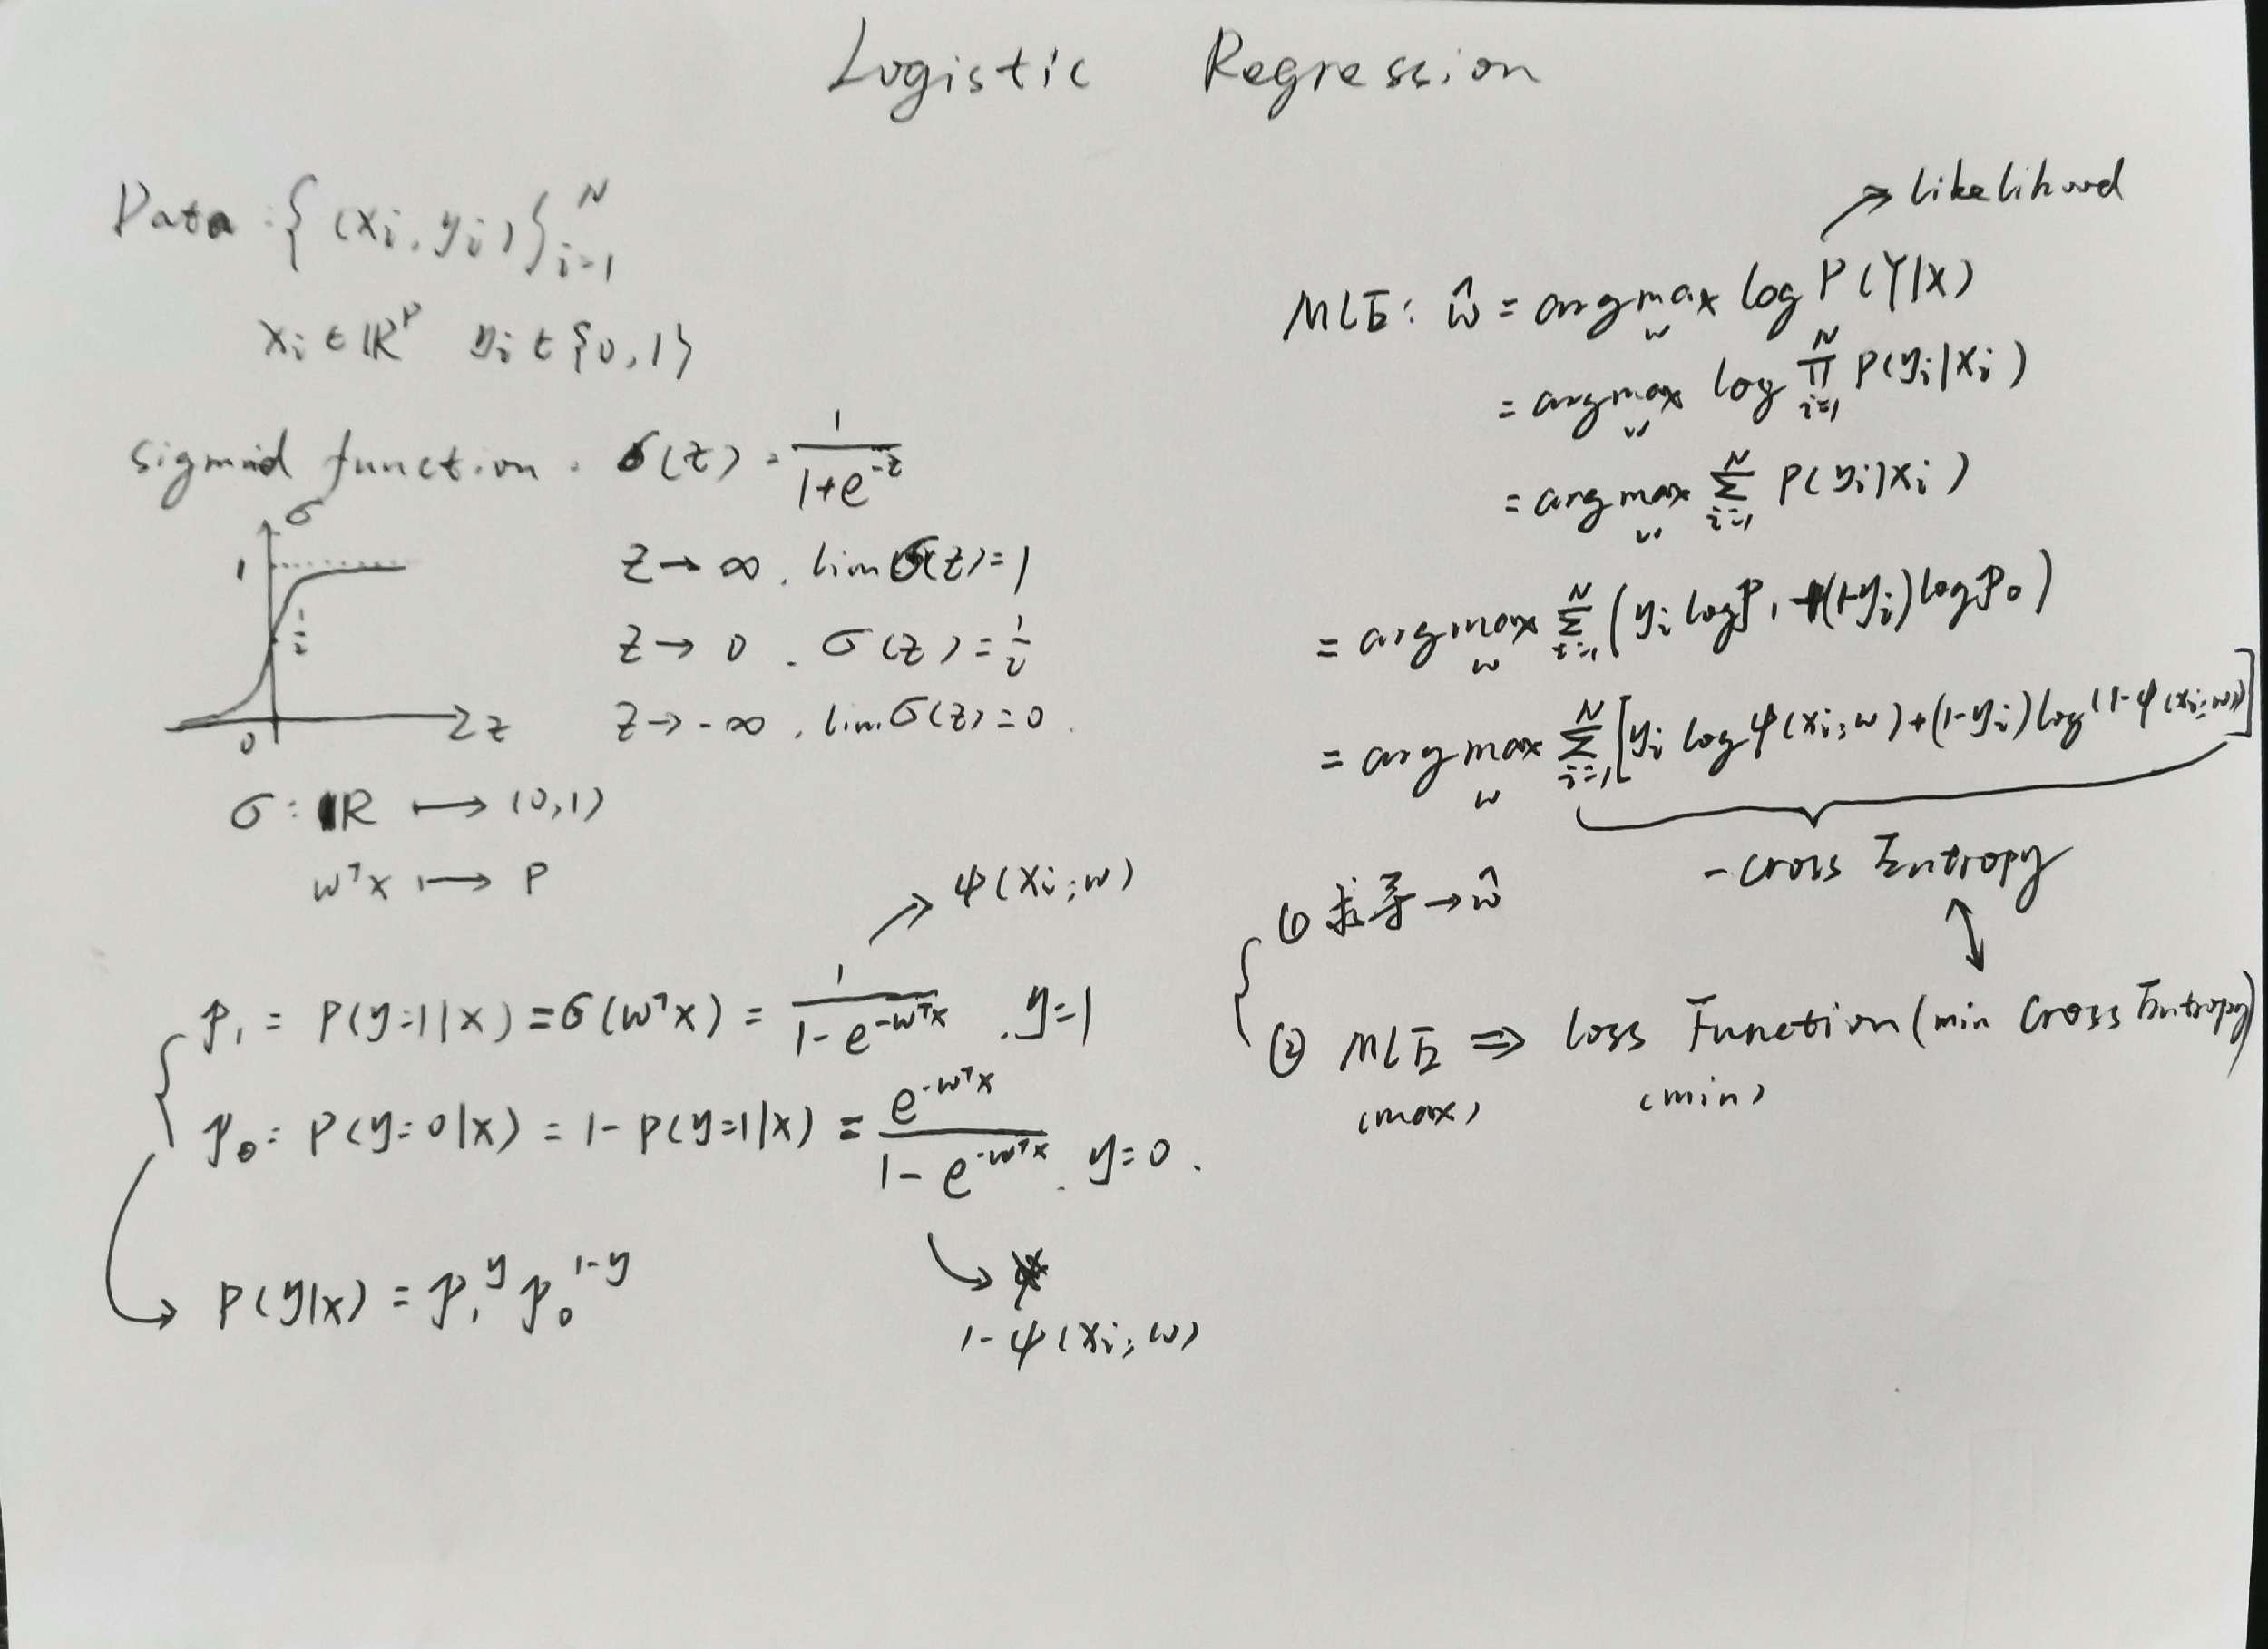 Logistic Regression
Data: {(xi, yi)}_{i=1}^N
xi ∈ ℝ^P yi ∈ {0,1}
sigmoid function. σ(z) = 1/(1+e^{-z})
σ
1
1/2
0
z
z → ∞, lim σ(z) = 1
z → 0. σ(z) = 1/2
z → -∞, lim σ(z) = 0.
σ: ℝ ⟼ (0,1)
w^T x ⟼ P
→ ψ(xi; w)
p₁ = P(y=1|x) = σ(w^T x) = 1/(1-e^{-w^T x}), y=1
p₀ = P(y=0|x) = 1-P(y=1|x) = e^{-w^T x}/(1-e^{-w^T x}), y=0.
→ 1-ψ(xi; w)
→ P(y|x) = p₁^y p₀^{1-y}
→ likelihood
MLE: ŵ = argmax_w log P(Y|X)
= argmax_w log ∏_{i=1}^N P(yi|xi)
= argmax_w ∑_{i=1}^N P(yi|xi)
= argmax_w ∑_{i=1}^N (yi log p₁ + (1-yi) log p₀)
= argmax_w ∑_{i=1}^N [yi log ψ(xi; w) + (1-yi) log(1-ψ(xi; w))]
-cross Entropy
① 求导 → ŵ
② MLE ⇒ Loss Function (min Cross Entropy)
(max) (min)